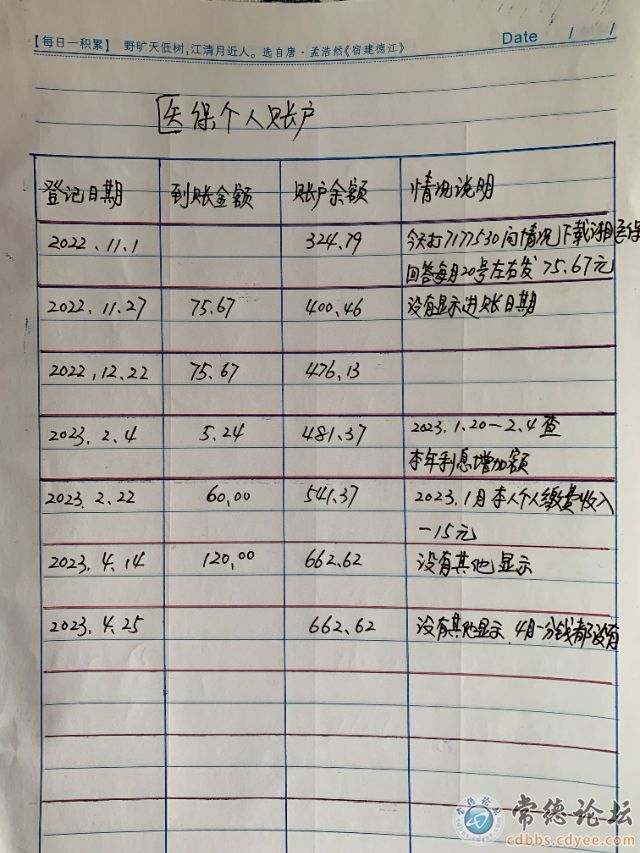 【每日一积累】 野旷天低树,江清月近人。选自唐·孟浩然《宿建德江》 Date / /
医保个人账户
登记日期 到账金额 账户余额 情况说明
2022.11.1 324.79 今天打7177530问情况下载湘医保
回答每月20号左右发 75.67元
2022.11.27 75.67 400.46 没有显示进账日期
2022.12.22 75.67 476.13
2023.2.4 5.24 481.37 2023.1.20-2.4查
本年利息增加额
2023.2.22 60.00 541.37 2023.1月本人个人缴费收入
-15元
2023.4.14 120.00 662.62 没有其他显示
2023.4.25 662.62 没有其他显示.4月一分钱都没有
常德论坛 常德论坛
cdbbs.cdyee.com